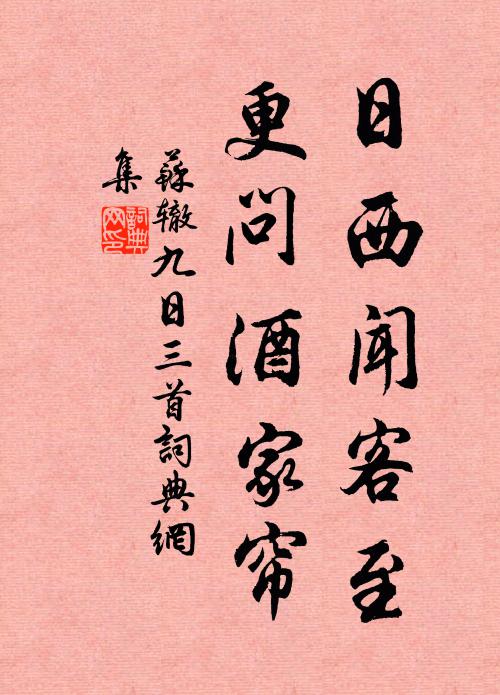 日西闻客至
更问酒家帘
蘇辙九日三首詞典網
集
詞典
网印